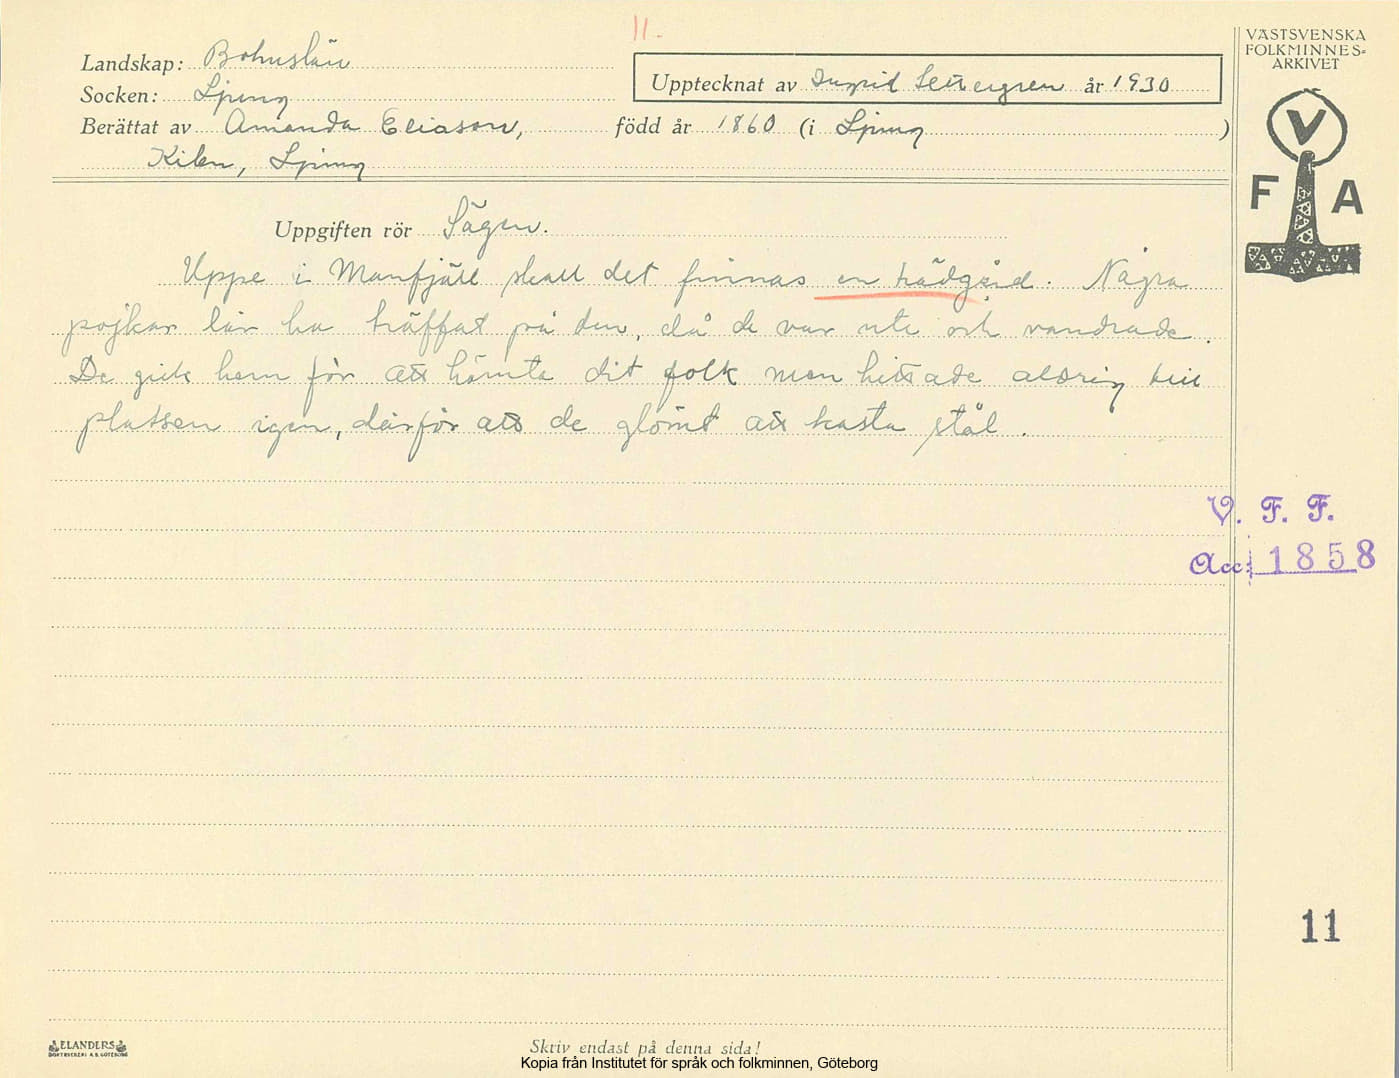 11.
VÄSTSVENSKA
FOLKMINNES-
ARKIVET
Landskap: Bohuslän
Socken: Ljung
Upptecknat av Ingrid Settergren år 1930
Berättat av Amanda Eliason, född år 1860 (i Ljung)
Kilen, Ljung
V
F A
Uppgiften rör Sägen.
Uppe i Manfjäll skall det finnas en trädgård. Några
pojkar lär ha träffat på den, då de var ute och vandrade.
De gick hem för att hämta dit folk men hittade aldrig till
platsen igen, därför att de glömt att kasta stål.
V. F. F.
Acc: 1858
11
ELANDERS
BOKTRYCKERI A.B. GÖTEBORG
Skriv endast på denna sida!
Kopia från Institutet för språk och folkminnen, Göteborg